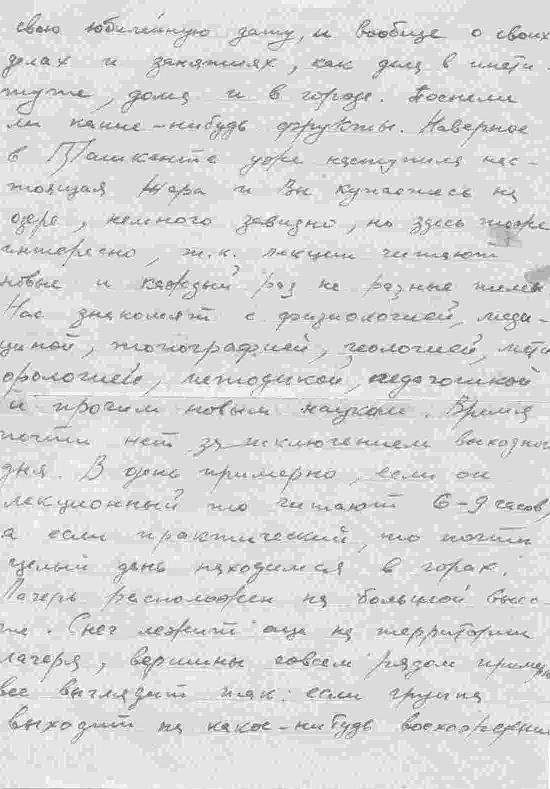 свою юбилейную дату, и вообще о своих
делах и занятиях, как дела в инсти-
туте, дома и в городе. Поспели
ли какие-нибудь фрукты. Наверное
в Ташкенте уже наступила нас-
тоящая жара и Вы купаетесь на
озере, немного завидно, но здесь тоже
интересно, т.к. лекции читают
новые и каждый раз на разные темы
Нас знакомят с физиологией, меди-
циной, топографией, геологией, мете
орологией, методикой, педагогикой
и прочим новым наукам. Время
почти нет за исключением выходного
дня. В день примерно, если он
лекционный то читают 6-9 часов,
а если практический, то почти
целый день находимся в горах.
Лагерь расположен на большой высо-
те. Снег лежит ещё на территории
лагеря, вершины совсем рядом пример
все выглядит так: если группа
выходит на какое-нибудь восхождение